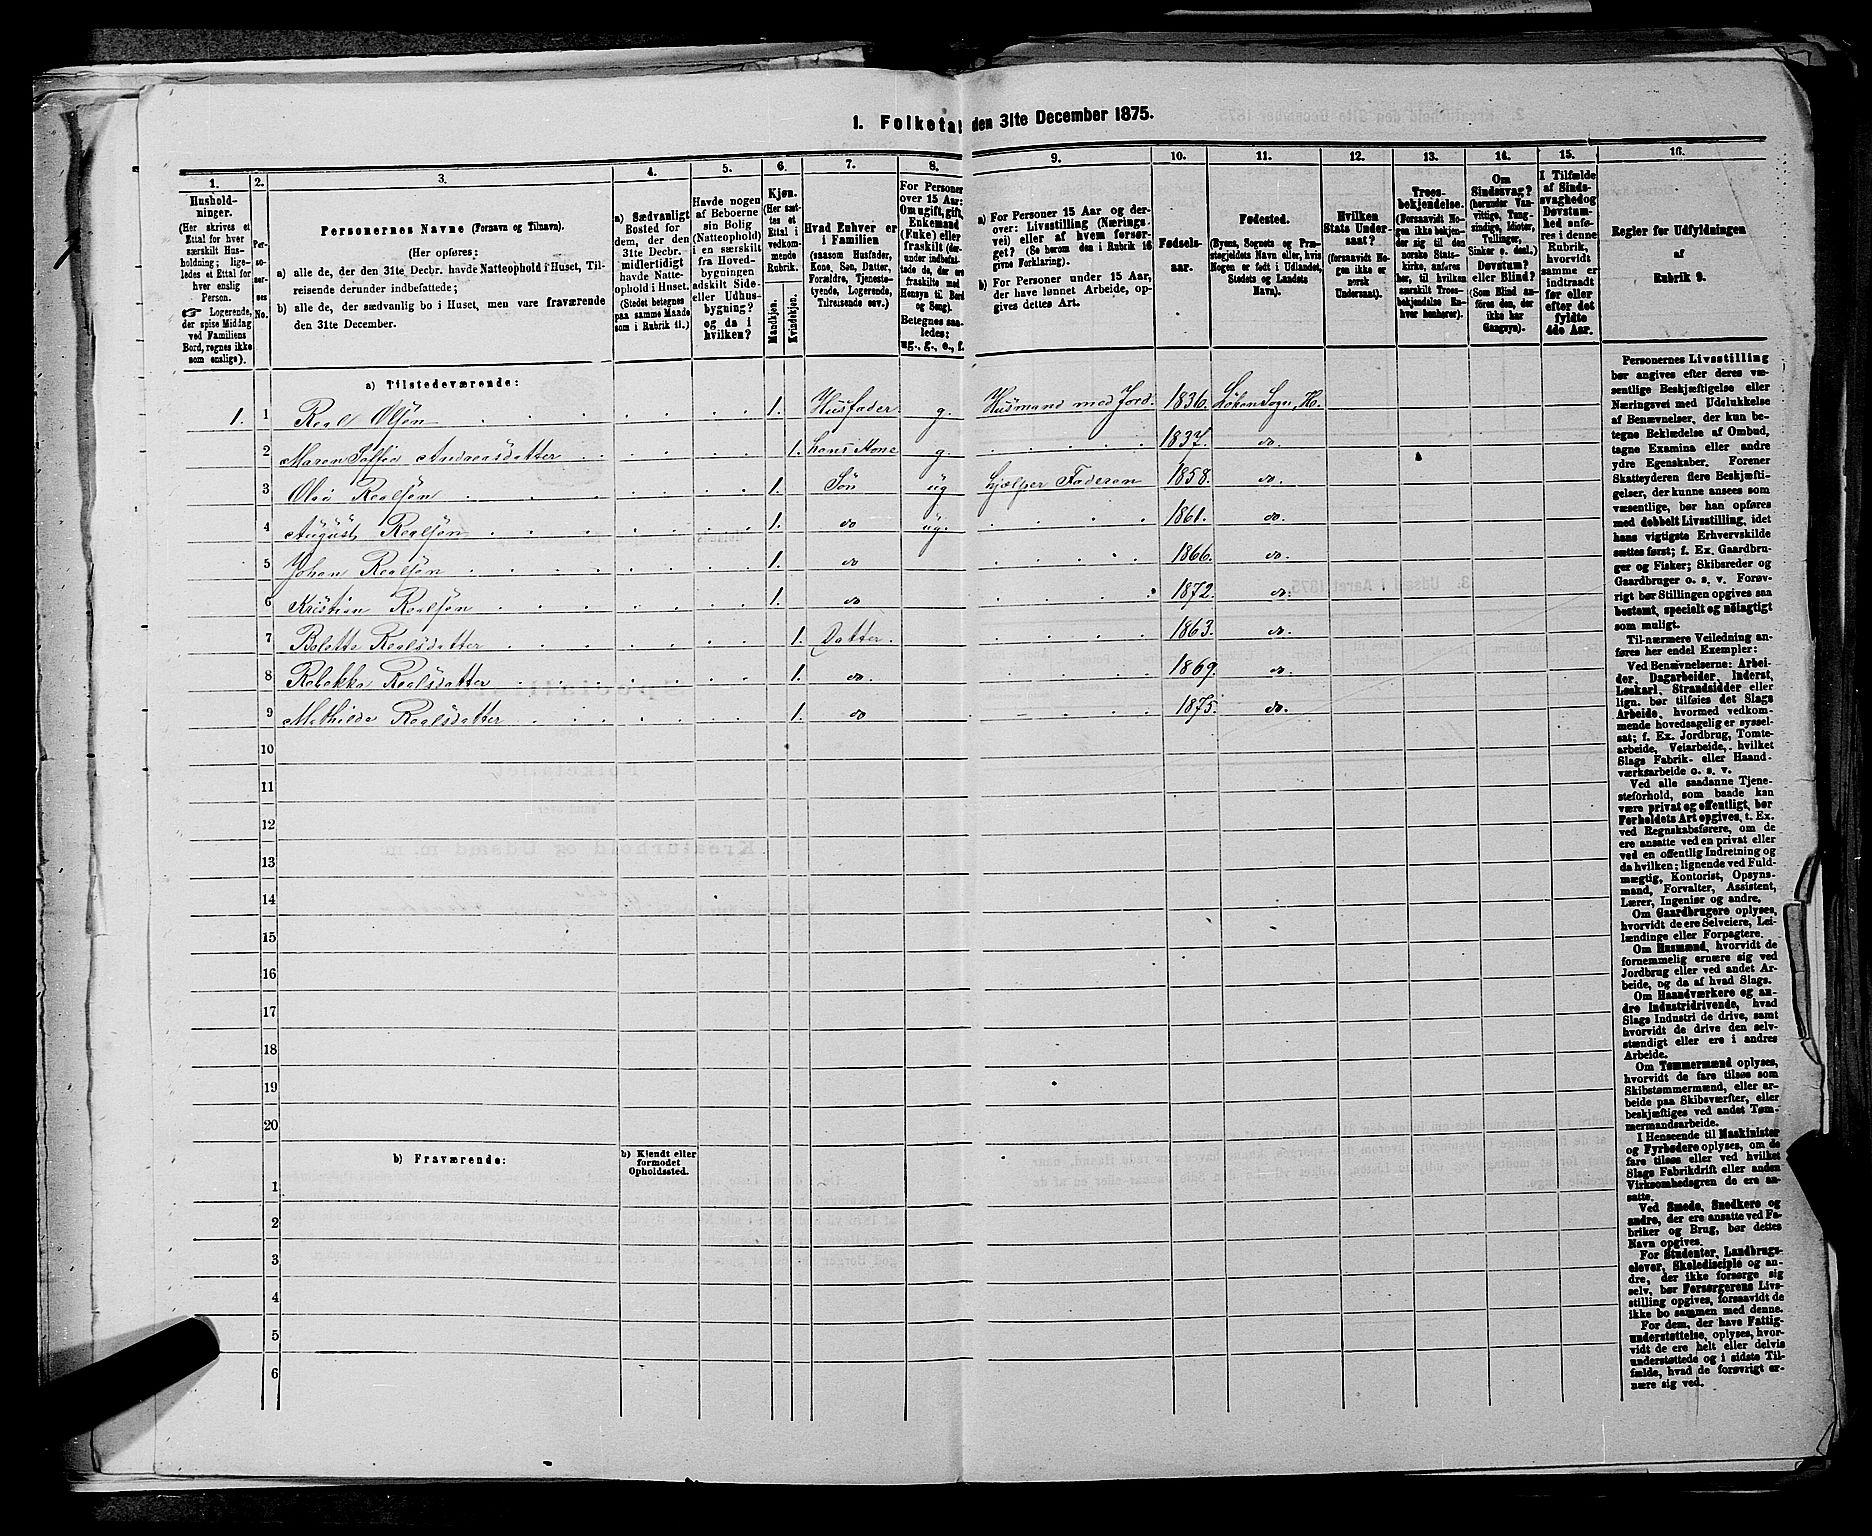 1. Folketal den 31te December 1875.
1. 2. 3. 4. 5. 6. 7. 8. 9. 10. 11. 12. 13. 14. 15. 16.
Husholdninger.
(Her skrives et
Ettal for hver
særskilt Husholdning;
ligeledes et Ettal for
hver enslig
Person.
☞ Logerende,
der spise Middag
ved Familiens
Bord, regnes ikke
som enslige).
Personernes No.
Personernes Navne (Fornavn og Tilnavn).
(Her opføres:
a) alle de, der den 31te Decbr. havde Natteophold i Huset, Tilreisende derunder indbefattede;
b) alle de, der sædvanlig bo i Huset, men vare fraværende
den 31te December.
a) Sædvanligt
Bosted for
dem, der den
31te Decbr.
midlertidigt
havde Natteophold i Huset.
(Stedet betegnes
paa samme Maade
som i Rubrik 11.)
Havde nogen
af Beboerne
sin Bolig
(Natteophold)
i en særskilt
fra Hovedbygningen
adskilt Side-
eller Udhusbygning?
og da i
hvilken?
Kjøn.
(Her sættes et
Ettal i
vedkommende
Rubrik.
Mandkjøn.
Kvindekjøn.
Hvad Enhver er
i Familien
(saasom Husfader,
Kone, Søn, Datter,
Forældre, Tjenestetyende, Logerende,
Tilreisende osv.)
For Personer
over 15 Aar:
Om ugift, gift,
Enkemand
(Enke) eller
fraskilt (derunder indbefattede de, der ere
fraskilte med
Hensyn til Bord
og Seng).
Betegnes saaledes:
ug., g., e., f.
a) For Personer 15 Aar og derover: Livsstilling (Næringsvei) eller af hvem forsørget? (Se herom den i Rubrik 16
givne Forklaring).
b) For Personer under 15 Aar,
der have lønnet Arbeide, opgives dettes Art.
Fødselsaar.
Fødested.
(Byens, Sognets og Præstegjeldets Navn eller, hvis
Nogen er født i Udlandet,
Stedets og Landets
Navn).
Hvilken
Stats Undersaat?
(forsaavidt Nogen ikke er
norsk
Undersaat).
Troesbekjendelse.
(Forsaavidt Nogen ikke bekjender sig til den
norske Statskirke, anføres
her, til hvilken
særskilt Troesbekjendelse Enhver henhører).
Om
Sindssvag?
(herunder Vanvittige, Tungsindige, Idioter,
Tullinger,
Sinker o. desl.).
Døvstum?
eller Blind?
(Som Blind anføres den, der
ikke har
Gangsyn).
I Tilfælde
af Sindssvaghed og
Døvstumhed anføres i denne
Rubrik,
hvorvidt
samme er
indtraadt
før eller
efter det
fyldte
4de Aar.
Regler for Udfyldningen
af
Rubrik 9.
a) Tilstedeværende:
1. 1 Real Olsön 1. Husfader g. Husmand med Jord. 1836. Løken Sogn, H.
2 Maren Andreasdatter 1. hans Kone g. 1837. do.
3 Olaö Realsön 1. Sön ug Hjælper Faderen 1858. do.
4 August Realsön 1. do ug. 1861. do.
5 Johan Realsön 1. do 1866. do.
6 Kristian Realsön 1. do 1872. do.
7 Bolette Realsdatter 1. Datter. 1863. do.
8 Rebekka Realsdatter 1. do. 1869. do.
9 Mathilde Realsdatter 1. do 1875. do.
10
11
12
13
14
15
16
17
18
19
20
b) Fraværende:
b) Kjendt eller
formodet
Opholdssted.
1
2
3
4
5
6
Personernes Livsstilling
bør angives efter deres væsentlige Beskjæftigelse eller
Næringsvei med Udelukkelse
af Benævnelser, der kun betegne Beklædelse af Ombud,
tagne Examina eller andre
ydre Egenskaber. Forener
Skatteyderen flere Beskjæftigelser, der kunne ansees som
væsentlige, bør han opføres
med dobbelt Livsstilling, idet
hans vigtigste Erhvervskilde
sættes først; f. Ex. Gaardbruger og Fisker; Skibsreder og
Gaardbruger o. s. v. Forøvrigt bør Stillingen opgives saa
bestemt, specielt og nøiagtigt
som muligt.
Til nærmere Veiledning anføres her endel Exempler:
Ved Benævnelserne: Arbeider, Dagarbeider, Inderst,
Løskarl, Strandsidder eller
lign. bør tilføies det Slags
Arbeide, hvormed vedkommende hovedsagelig er sysselsat; f. Ex. Jordbrug, Tomtearbeide, Veiarbeide, hvilket
Slags Fabrik- eller Haandværksarbeide o. s. v.
Ved alle saadanne Tjenesteforhold, som baade kan
være privat og offentligt, bør
Forholdets Art opgives, t. Ex.
ved Regnskabsførere, om de
ere ansatte ved en privat eller
ved en offentlig Indretning og
da hvilken; lignende ved Fuldmægtig, Kontorist, Opsynsmand, Forvalter, Assistent,
Lærer, Ingeniør og andre.
Om Gaardbrugere oplyses,
hvorvidt de ere Selveiere, Leilændinge eller Forpagtere.
Om Husmænd, hvorvidt de
fornemmelig ernære sig ved
Jordbrug eller ved andet Arbeide, og da af hvad Slags.
Om Haandværkere og andre Industridrivende, hvad
Slags Industri de drive, samt
hvorvidt de drive den selvstændigt eller ere i andres
Arbeide.
Om Tømmermænd oplyses,
hvorvidt de fare tilsøs som
Skibstømmermænd, eller arbeide paa Skibsværfter, eller
beskjæftiges ved andet Tømmermandsarbeide.
I Henseende til Maskinister
og Fyrbødere oplyses, om de
fare tilsøs eller ved hvilket
Slags Fabrikdrift eller anden
Virksomhedsgren de ere ansatte.
Ved Smede, Snedkere og
andre, der ere ansatte ved Fabriker og Brug, bør dettes
Navn opgives.
For Studenter, Landbrugselever, Skoledisciple og andre, der ikke forsørge sig
selv, bør Forsørgerens Livsstilling opgives, forsaavidt de
ikke bo sammen med denne.
For dem, der have Fattigunderstøttelse, oplyses, hvorvidt de ere helt eller delvis
understøttede og i sidste Tilfælde, hvad de forøvrigt ernære sig ved.